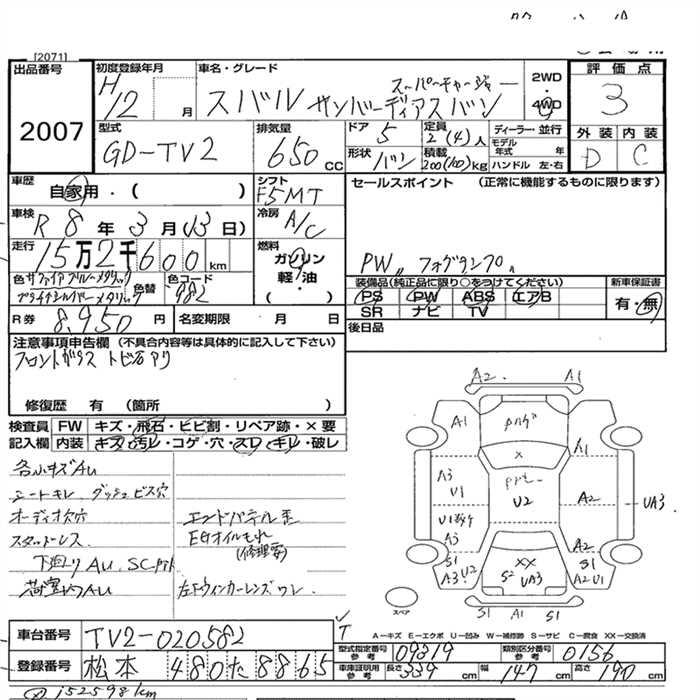 [2071]
出品番号
2007
初度登録年月
H12 月
車名・グレード
スーパーチャージャー
スバル サンバーディアスバン
2WD
・
4WD
評価点
3
外装 内装
D C
型式
GD-TV2
排気量
650 cc
ドア
5
形状
バン
定員
2(4)人
積載
200(100)kg
ディーラー・並行
モデル
年式 年
ハンドル 左・右
車歴
自家用・( )
シフト
F5MT
車検
R8年3月13日)
冷房
A/C
走行
15万2千600km
燃料
ガソリン
軽/油
( )
色 サファイアブルーメタリック
プラチナシルバーメタリック
色替
色コード
982
R券
8,950円
名変期限 月 日
セールスポイント (正常に機能するものに限ります)
PW フォグランプ
装備品(純正品に限り○をつけてください)
PS PW ABS エアB
SR ナビ TV
新車保証書
有・無
後日品
注意事項申告欄 (不具合内容等は具体的に記入して下さい)
フロントガラス トビ石アリ
修復歴 有 (箇所 )
検査員
記入欄
FW キズ・飛石・ヒビ割・リペア跡・×要
内装 キズ・汚レ・コゲ・穴・スレ・キレ・破レ
各小キズAU
シートキレ、ダッシュビス穴
オーディオ穴
スタッドレス
下廻りAU、SC
荷室内AU
エンドパネル歪
EGオイルもれ
(修理要)
左ドウインカーレンズワレ
A2 A1
A1
×
A1
A3
U1
U2
A2
UA3
A3
S1
A3 U2
××
S2 UA3
A2
S1
A2 U1
S1 A1 S1
スペア
A-キズ E-エクボ U-凹み W-補修跡 S-サビ C-腐食 XX-交換済
車台番号
TV2-020582
登録番号
松本 480た8865
型式指定番号
参考
09319
類別区分番号
参考
0156
車庫証明用
参考
長さ 339cm 幅 147cm 高さ 190cm
152598km